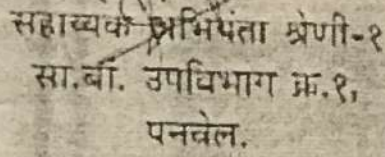 सहाय्यक अभियंता श्रेणी-१
सा.बां. उपविभाग क्र.१,
पनवेल.